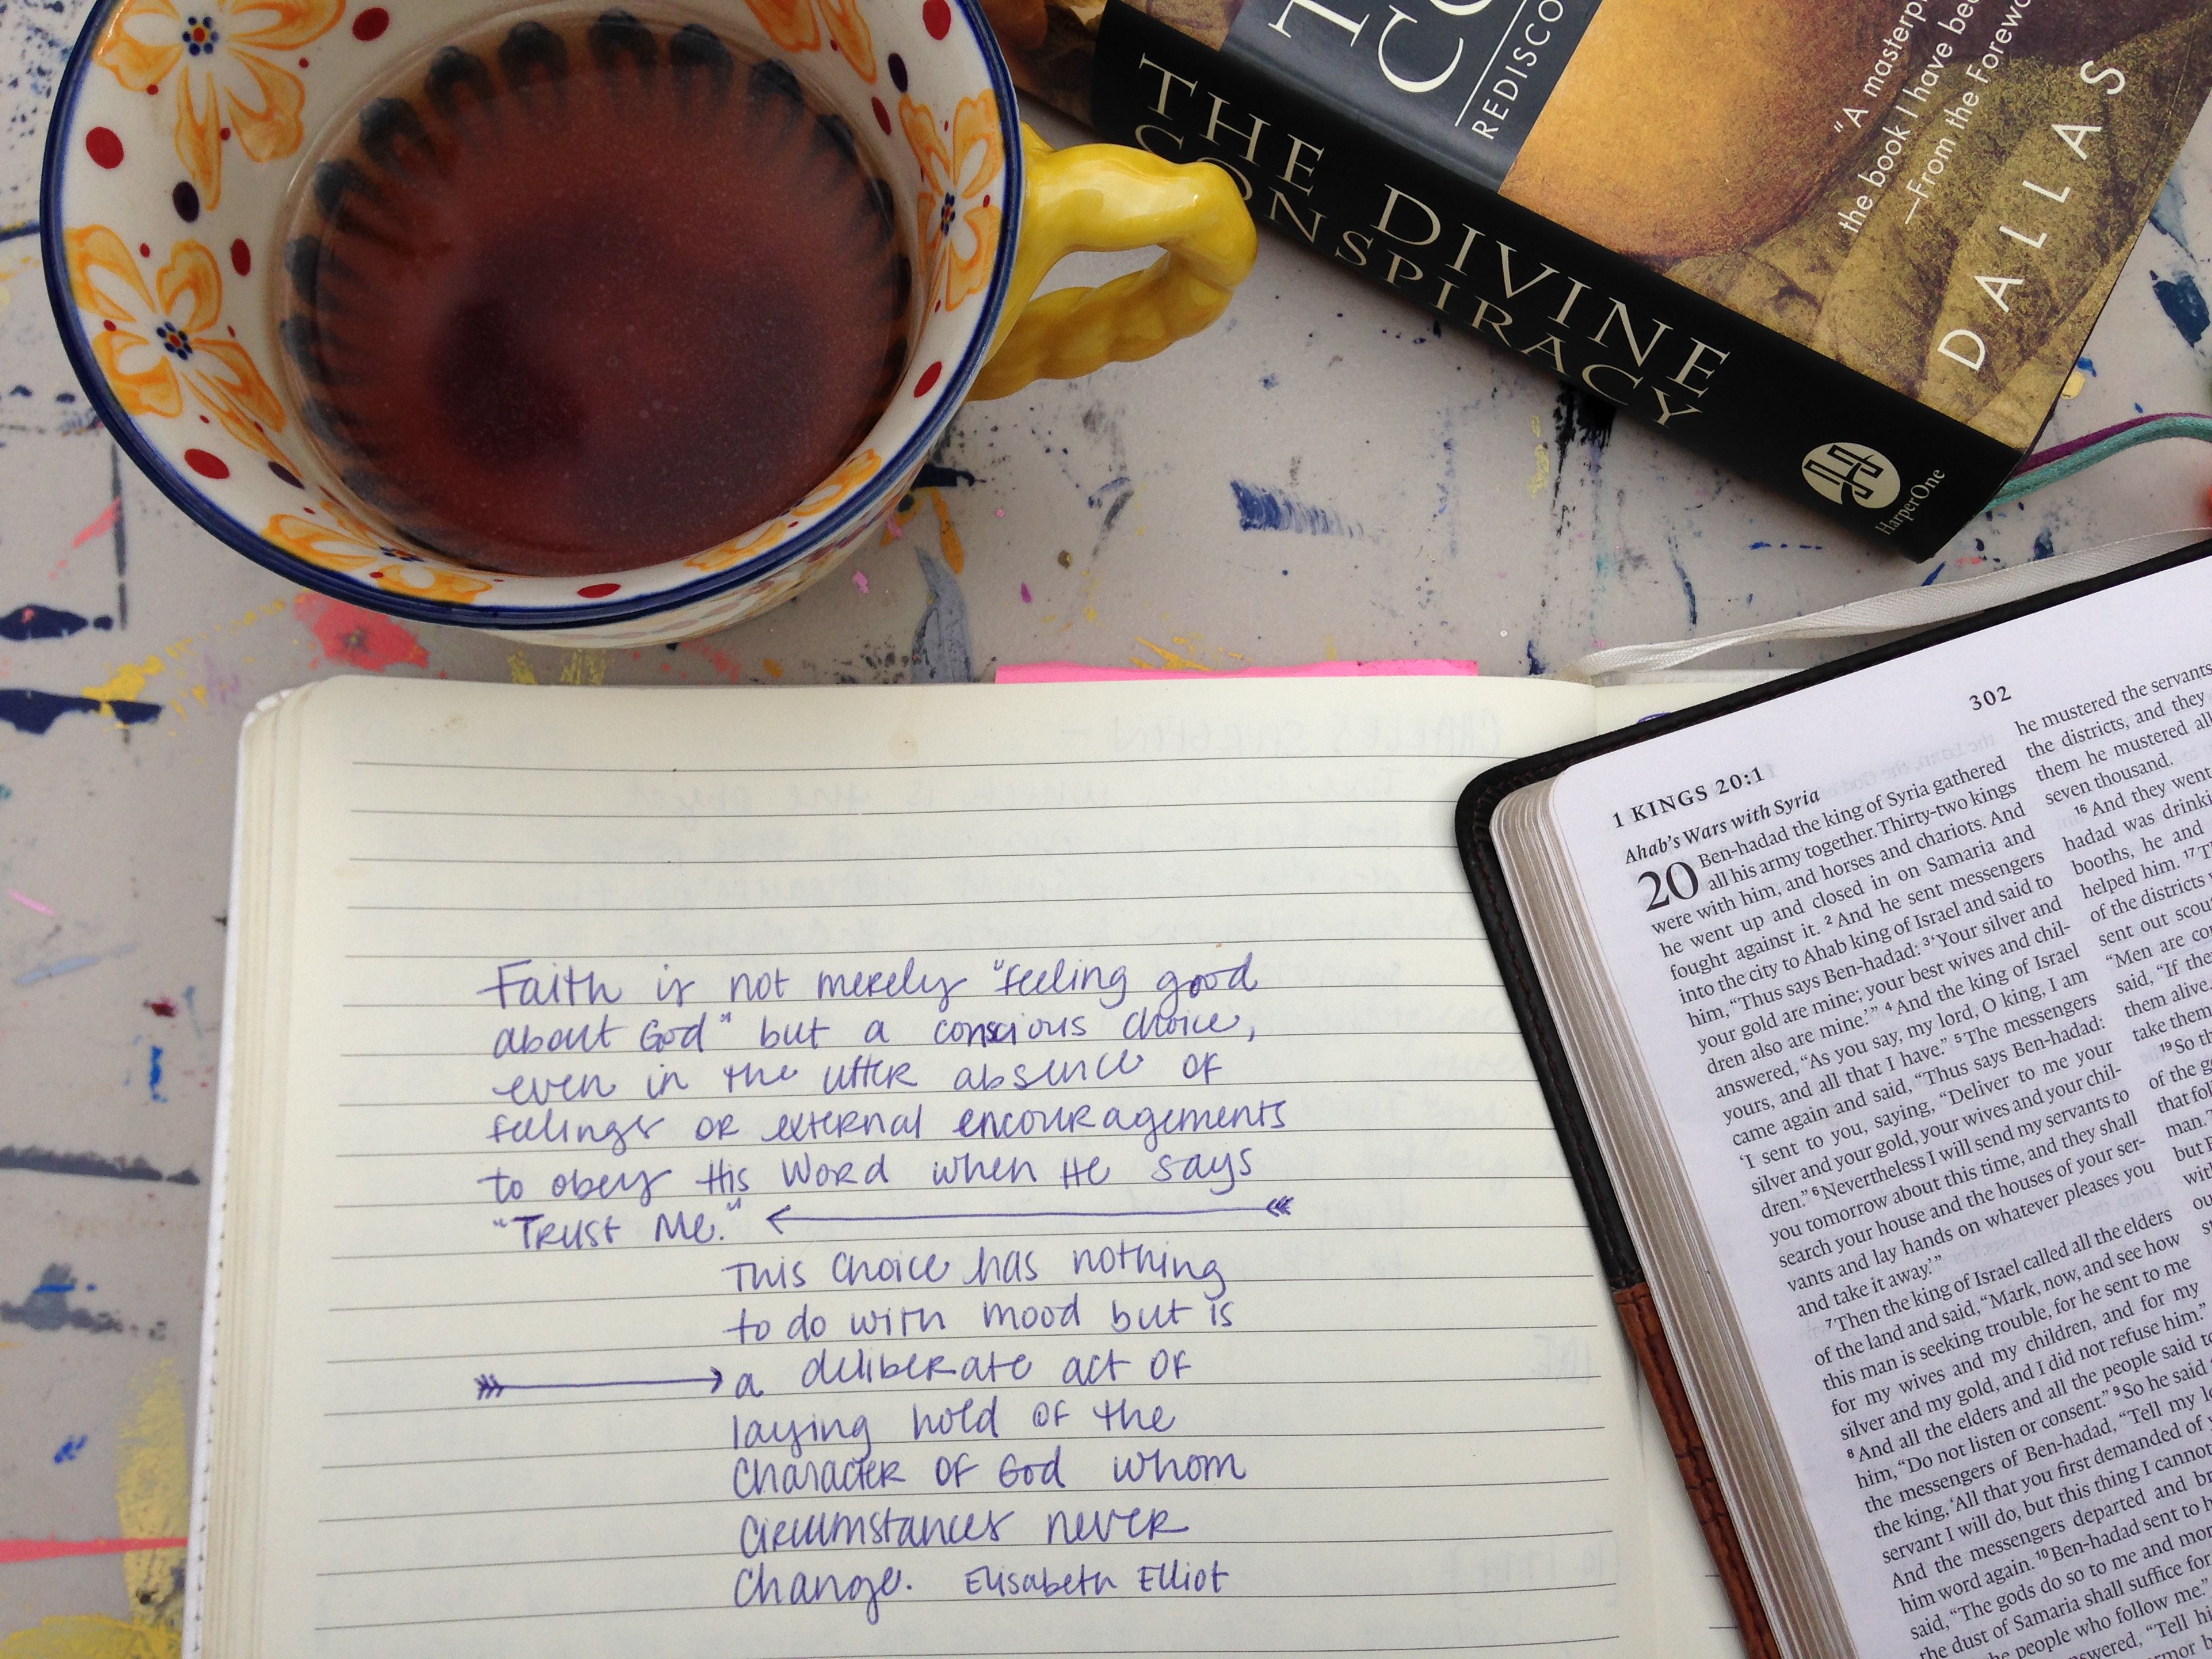 T
CO
REDISCO
"A masterp
the book I have bee
—From the Forewo
DALLAS
THE DIVINE
CONSPIRACY
HarperOne
Faith is not merely "feeling good
about God" but a conscious choice,
even in the utter absence of
feelings or external encouragements
to obey His Word when He says
"Trust Me."
This choice has nothing
to do with mood but is
a deliberate act of
laying hold of the
character of God whom
circumstances never
change. Elisabeth Elliot
1 KINGS 20:1
302
Ahab's Wars with Syria
20 Ben-hadad the king of Syria gathered
all his army together. Thirty-two kings
were with him, and horses and chariots. And
he went up and closed in on Samaria and
fought against it. 2 And he sent messengers
into the city to Ahab king of Israel and said to
him, "Thus says Ben-hadad: 3 'Your silver and
your gold are mine; your best wives and chil-
dren also are mine.'" 4 And the king of Israel
answered, "As you say, my lord, O king, I am
yours, and all that I have." 5 The messengers
came again and said, "Thus says Ben-hadad:
'I sent to you, saying, "Deliver to me your
silver and your gold, your wives and your chil-
dren." 6 Nevertheless I will send my servants to
you tomorrow about this time, and they shall
search your house and the houses of your ser-
vants and lay hands on whatever pleases you
and take it away.'"
7 Then the king of Israel called all the elders
of the land and said, "Mark, now, and see how
this man is seeking trouble, for he sent to me
for my wives and my children, and for my
silver and my gold, and I did not refuse him."
8 And all the elders and all the people said to
him, "Do not listen or consent." 9 So he said
the messengers of Ben-hadad, "Tell my lo
the king, 'All that you first demanded of y
servant I will do, but this thing I cannot
And the messengers departed and br
him word again. 10 Ben-hadad sent to h
said, "The gods do so to me and mor
the dust of Samaria shall suffice for
he people who follow me."
nswered, "Tell hi
he mustered the servants
the districts, and they
them he mustered all
seven thousand.
16 And they went
hadad was drinki
booths, he and
helped him. 17 T
of the districts
sent out scou
"Men are co
said, "If the
them alive.
take them
19 So th
of the g
that fol
man.
but
wit